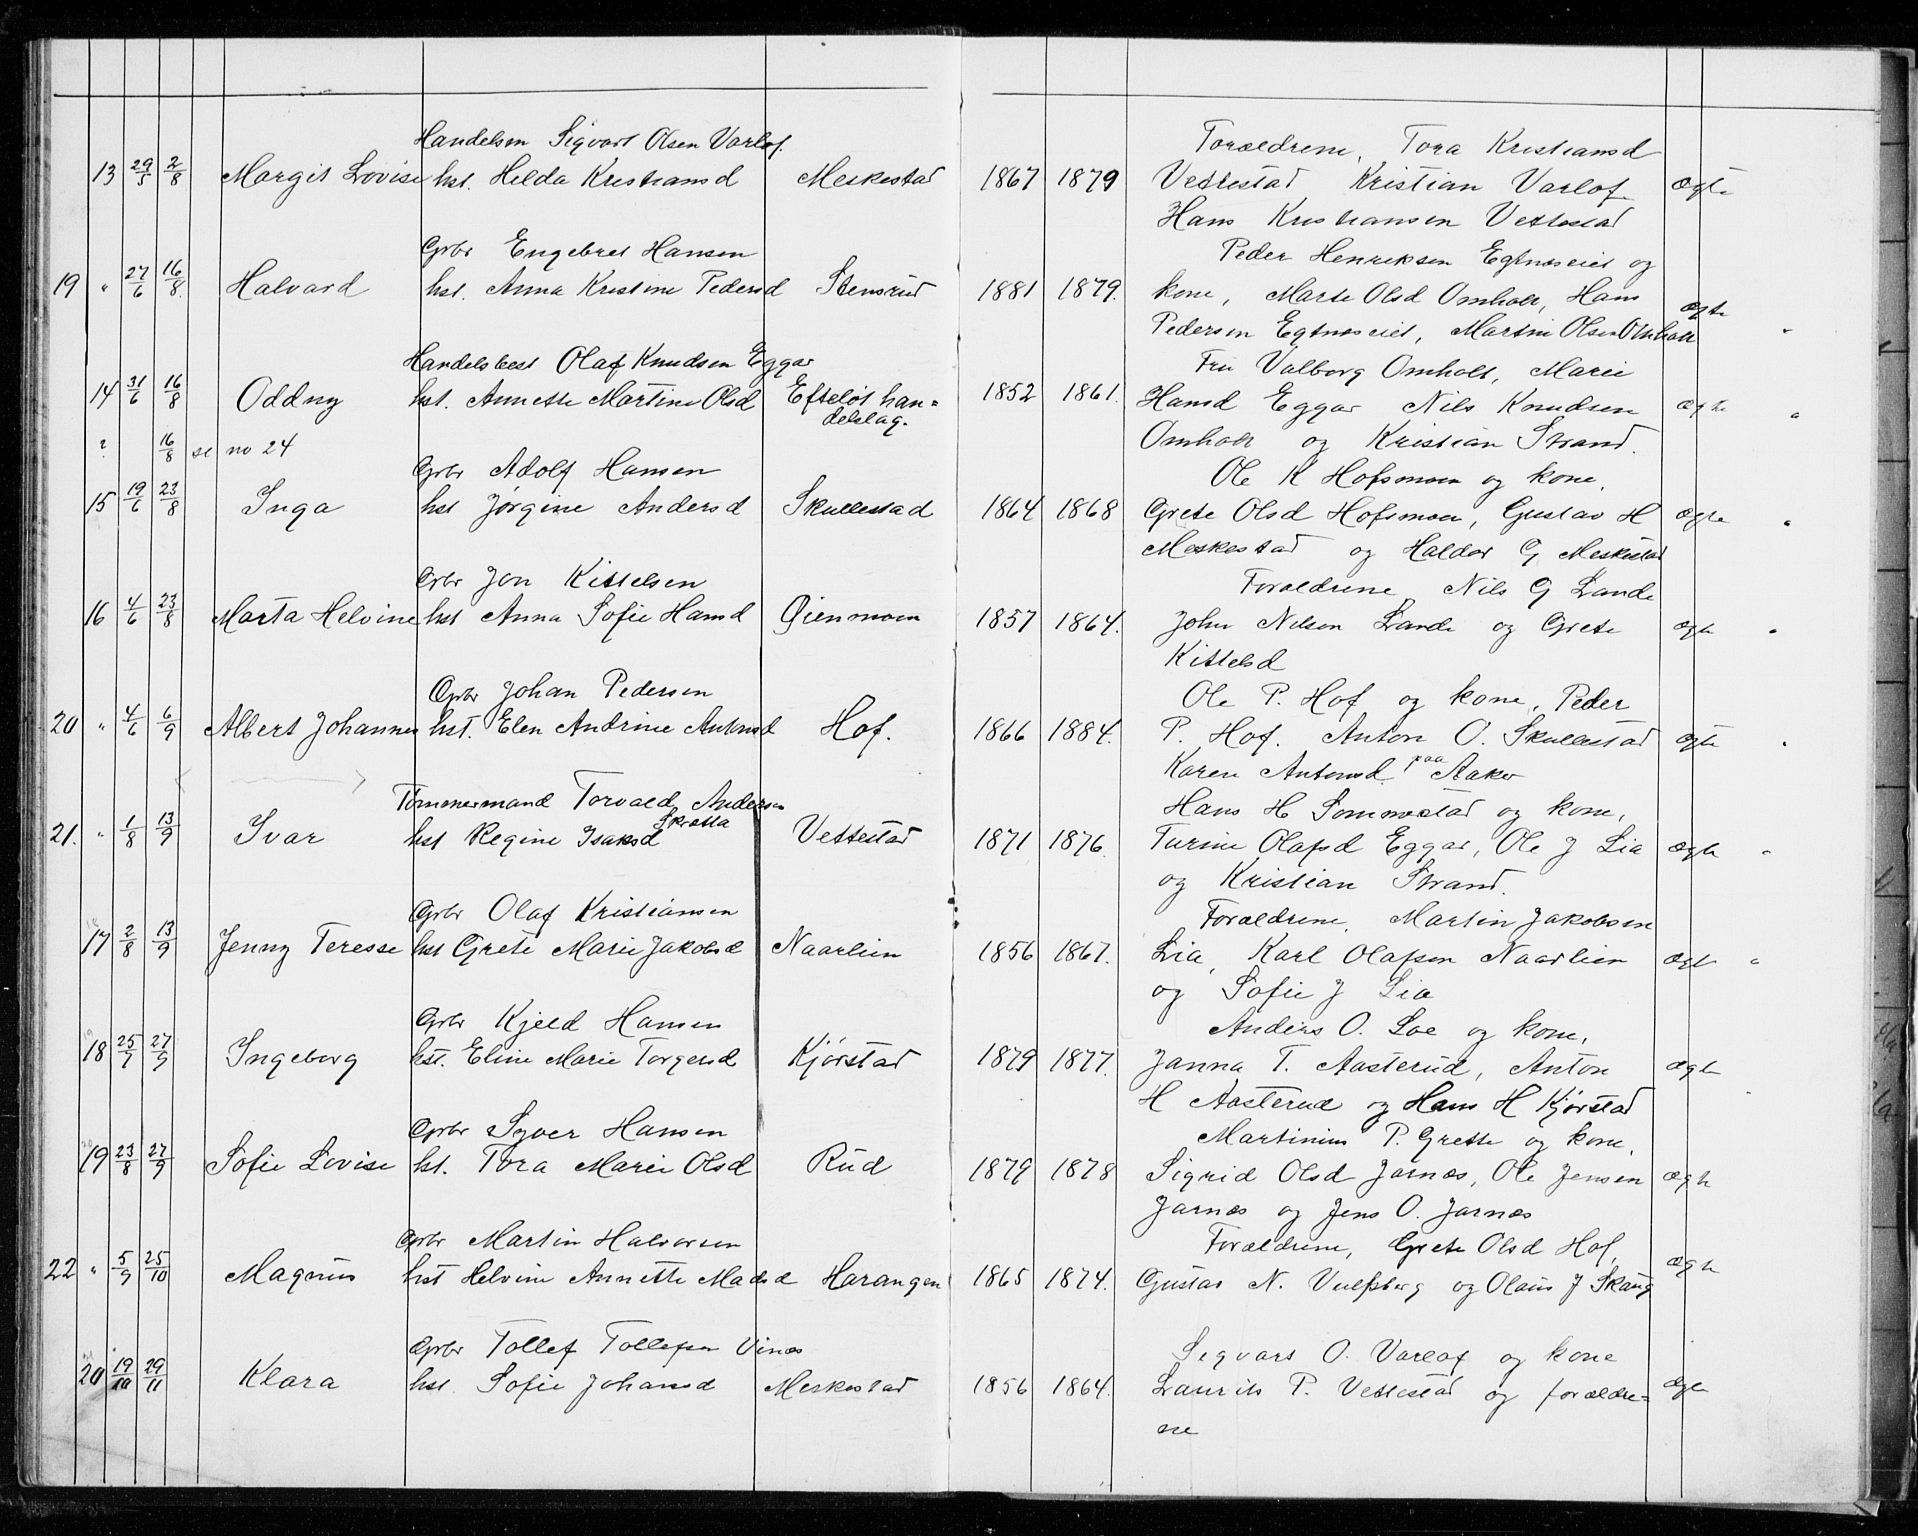 Handelsm Sigvart Olsen Varlof. Forældrene, Tora Kristiansd
13 29/5 2/8 Margit Lovise hst. Helda Kristiansd Meskestad 1867 1879 Vettestad Kristian Varlof ægte
Hans Kristiansen Vettestad
Grbr Engebret Hansen Peder Henriksen Egtnæseiet og
19 " 27/6 16/8 Halvard hst. Anna Kristine Pedersd Stensrud 1881 1879. kone, Marte Olsd Omholt, Hans ægte
Pedersen Egtnæseiet, Martin Olsen Omholt "
Handelsbest Olaf Knudsen Eggar Fru Valborg Omholt, Marie
14 31/6 16/8 Oddny hst. Annette Martine Olsd Efteløt han= 1852 1861. Hansd Eggar Nils Knudsen ægte "
delslag.
? 16/8 se no 24 Omholt og Kristian Strand.
Grbr Adolf Hansen Ole K Hofsmoen og kone,
15 19/6 23/8 Inga hst Jørgine Andersd Skullestad 1864 1868 Grete Olsd Hofsmoen, Gustav H ægte "
Meskestad og Haldor G Meskestad
Grbr Jon Kittelsen Forældrene Nils G Lande
16 4/6 23/8 Marta Helvine hst Anna Sofie Hansd Øienmoen 1857 1864. John Nilsen Lande og Grete ægte "
Kittelsd
Grbr Johan Pedersen Ole P. Hof og kone, Peder
20 " 4/6 6/9 Albert Johannes hst. Elen Andrine Antonsd Hof. 1866 1884. P. Hof. Anton O. Skullestad ægte "
Karen Antonsd paa Aaker
Tømmermand Torvald Andersen Hans H Sommestad og kone,
Skretta
21. " 1/8 13/9 Ivar hst Regine Isaksd Vettestad 1871 1876. Turine Olafsd Eggar, Ole J Lia ægte "
og Kristian Strand.
Grbr Olaf Kristiansen Forældrene, Martin Jakobsen
17 2/8 13/9 Jenny Teresse hst Grete Marie Jakobsd Naarlien 1856 1867. Lia, Karl Olafsen Naarlien ægte "
og Sofie J Lia
Grbr Kjeld Hansen Anders O. Loe og kone,
18 25/7 27/9 Ingeborg hst. Eline Marie Torgersd Kjørstad 1879 1877. Janna T. Aasterud, Anton ægte
H Aasterud og Hans H Kjørstad
Grbr Syver Hansen Martinius P. Grette og kone,
19 23/8 27/9 Sofie Lovise hst. Tora Marie Olsd Rud 1879 1878 Sigrid Olsd Jarnæs, Ole Jensen ægte
Jarnæs og Jens O. Jarnæs
Grbr Martin Halvorsen Forældrene, Grete Olsd Hof,
22 " 5/9 25/10 Magnus hst Helvine Annette Madsd Harangen 1865 1874. Gustav N. Vulfsberg og Olaus J Skaug ægte
Grbr Tollef Tollefsen Vinæs Sigvart O. Varlof og kone
20 19/10 29/11 Klara hst. Sofie Johansd Meskestad 1856 1864. Laurits P. Vettestad og forældre= ægte
ne